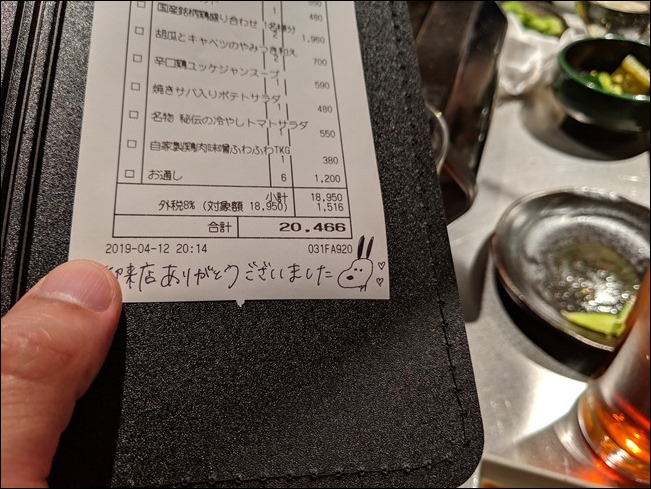 480
国産銘柄鶏盛り合わせ 1名様分
2 1,960
胡瓜とキャベツのやみつき和え
2 700
辛口鶏ユッケジャンスープ
1 590
焼きサバ入りポテトサラダ
1 480
名物 秘伝の冷やしトマトサラダ
1 550
自家製鶏肉味噌ふわふわTKG
1 380
お通し 6 1,200
小計 18,950
外税8% (対象額 18,950) 1,516
合計 20,466
2019-04-12 20:14 031FA920
御来店ありがとうございました